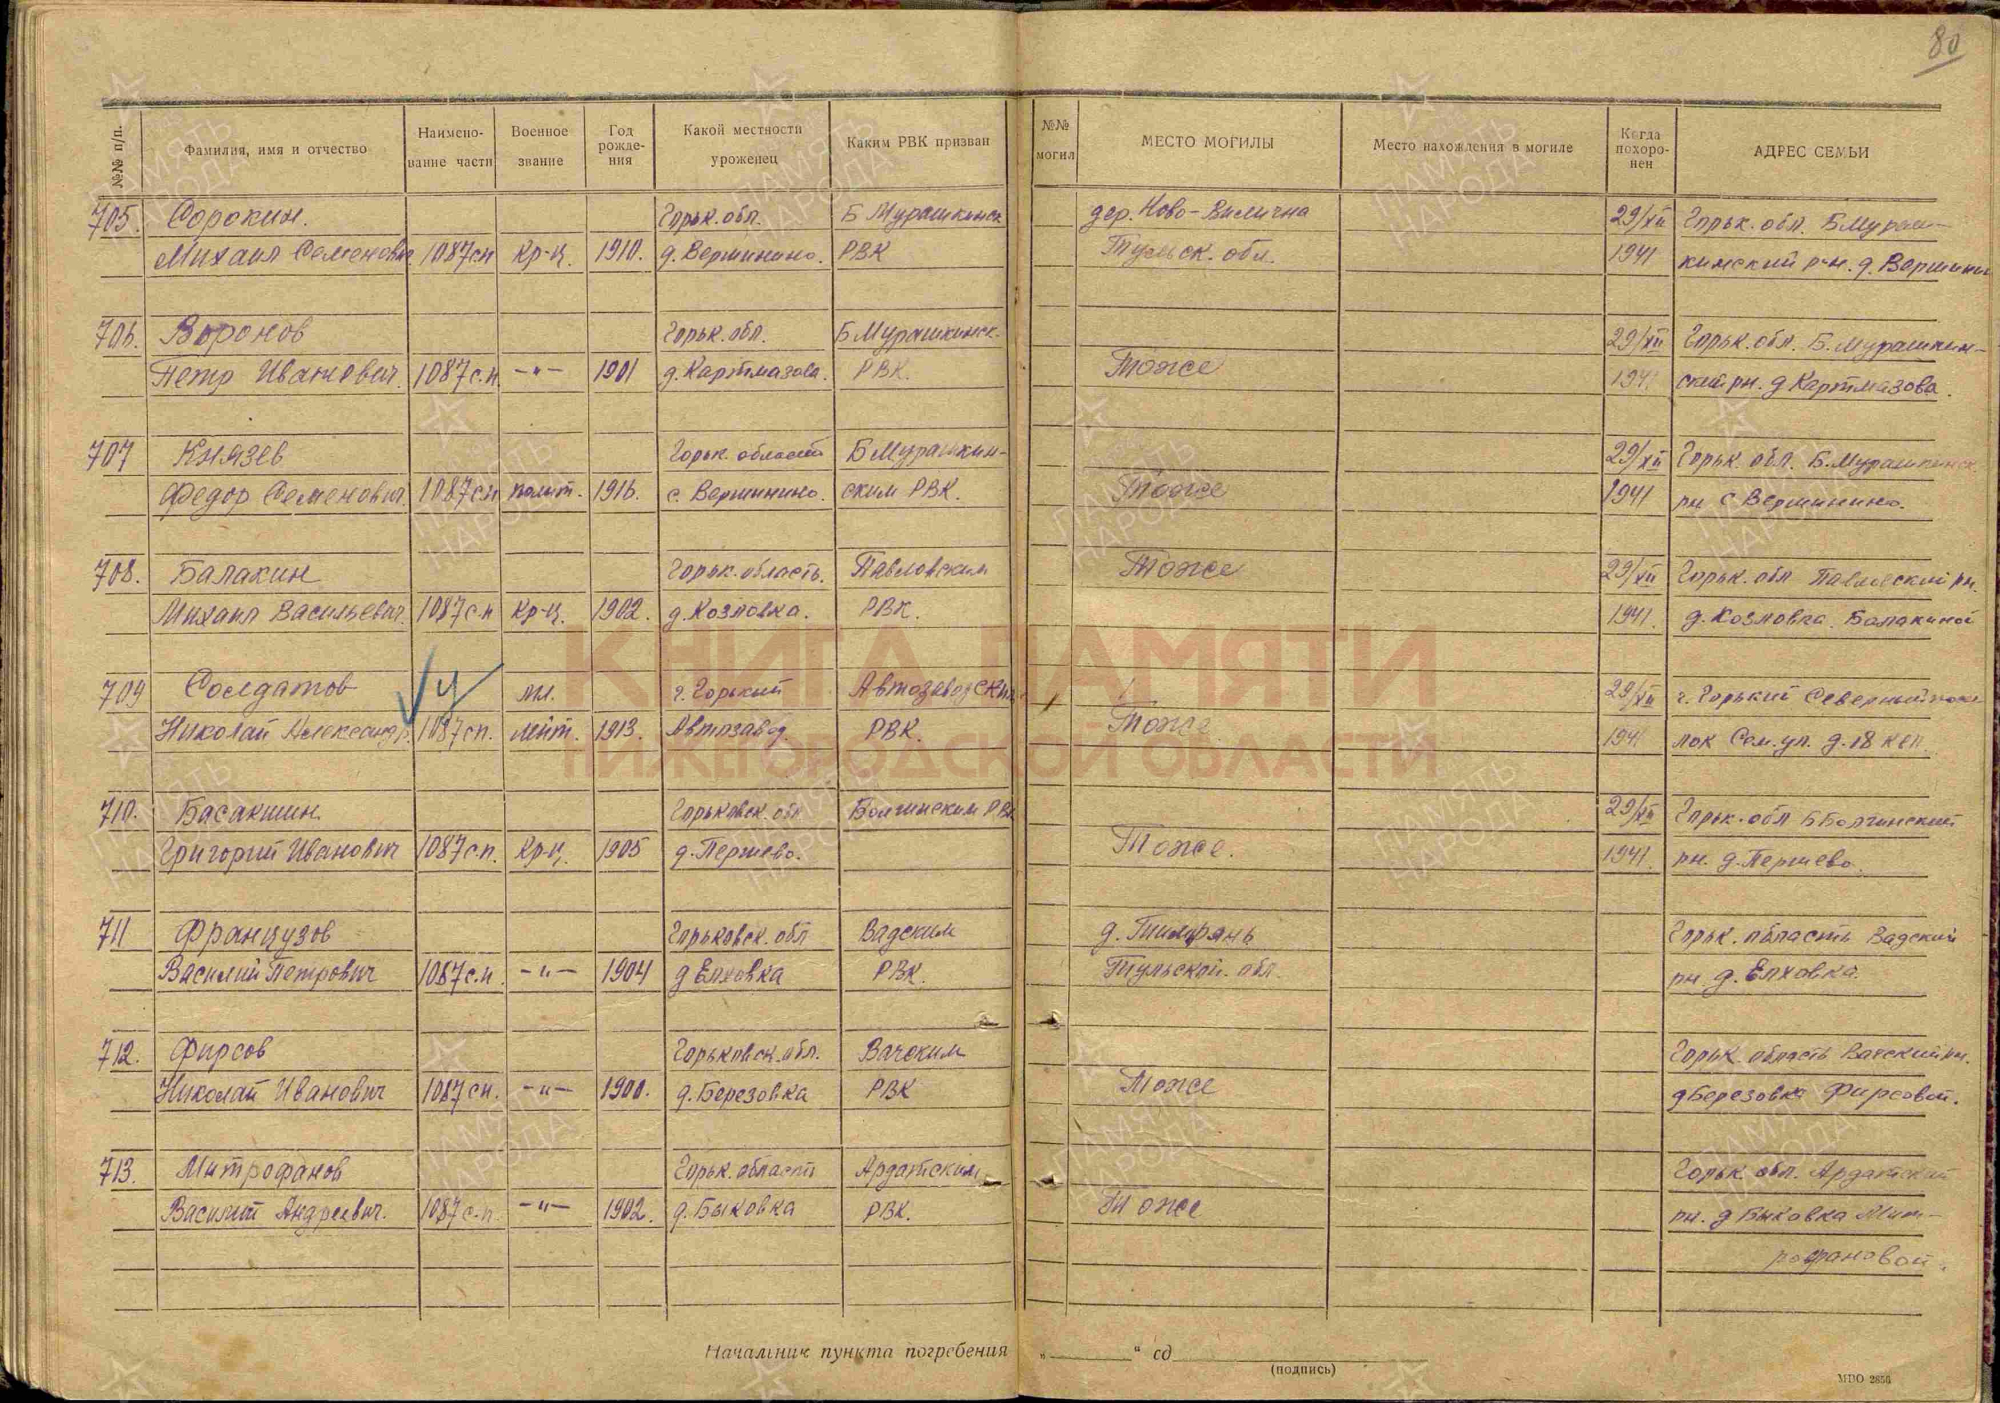 80
№№ п/п.
Фамилия, имя и отчество
Наимено-
вание части
Военное
звание
Год
рожде-
ния
Какой местности
уроженец
Каким РВК призван
№№
могил
МЕСТО МОГИЛЫ
Место нахождения в могиле
Когда
похоро-
нен
АДРЕС СЕМЬИ
705 Сорокин. Горьк. обл. Б Мурашкинск дер. Ново- 29/XII Горьк. обл. БМураш-
Михаил Семенович 1087сп Кр-ц. 1910. д. Вершинино. РВК Тульск. обл. 1941 кинский р-н. д. Вершины
706. Воронов Горьк. обл. Б Мурашкинск. 29/XII Горьк. обл. Б. Мурашкин-
Петр Иванович. 1087с.п. -"- 1901 д. Картмазова. РВК. Тоже 1941 ский рн. д Картмазова.
707 Князев Горьк. област БМурашкин- 29/XII Горьк. обл. Б. Мурашкинск.
Федор Семенович 1087сп полит. 1916. с. Вершинино. ским РВК. Тоже 1941 рн с Вершинино.
708. Балакин Горьк. область. Павловским Тоже 29/XII Горьк. обл Павловский рн.
Михаил Васильевич. 1087с.п Кр-ц. 1902. д. Козловка. РВК. 1941. д. Козловка. Балакиной
709 Солдатов мл. г. Горький Автозаводским 29/XII г. Горький Северный посе
Николай Александр. 1087сп. лейт. 1913. Автозавод. РВК. Тоже 1941 лок Сем. ул. д. 18 кв.
710. Басакшин. Горьковск. обл Болчинским РВК 29/XII Горьк. обл Б Болчинский
Григорий Иванович 1087с.п. Кр-ц. 1905 д. Першево. Тоже. 1941. рн. д. Першево.
711 Французов Горьковск. обл Вадским д. Горьк. область Вадский
Василий Петрович 1087с.п. -"- 1904 д Елховка РВК. Тульской. обл. рн. д. Елховка.
712. Фирсов Горьковск. обл. Вачским Горьк. область Вачский рн.
Николай Иванович 1087сп. -"- 1900. д. Березовка РВК Тоже д Березовка Фирсовой.
713. Митрофанов Горьк. област Ардатским Горьк. обл. Ардатский
Василий Андреевич. 1087с.п. -"- 1902. д. Быковка РВК. Тоже рн. д Быковка Мит-
рофановой.
Начальник пункта погребения „ " сд
(подпись)
МВО 2856
КНИГА ПАМЯТИ
НИЖЕГОРОДСКОЙ ОБЛАСТИ
ПАМЯТЬ
НАРОДА